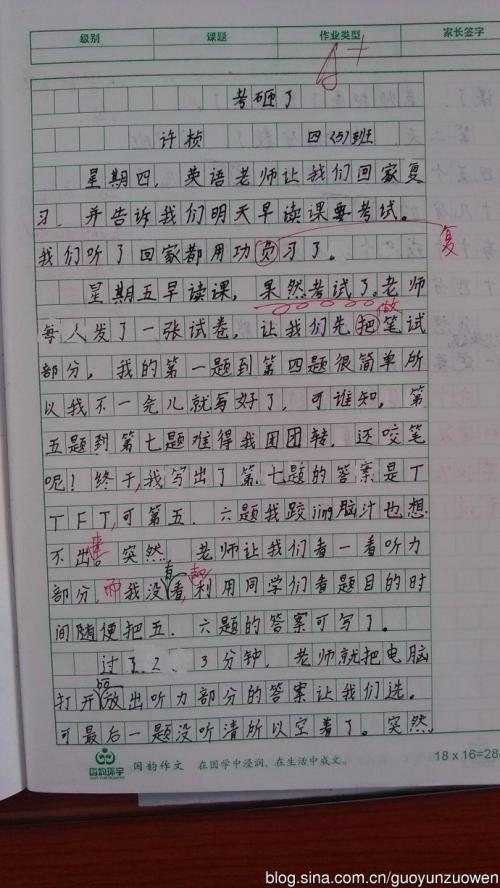 级别 课题 作业类型 家长签字
A+
考砸了
许桢 四(5)班
星期四,英语老师让我们回家复
习,并告诉我们明天早读课要考试。
我们听了回家都用功负习了。复
星期五早读课,果然考试了。老师
每人发了一张试卷,让我们先把笔试 做
部分,我的第一题到第四题很简单所
以我不一会儿就写好了,可谁知,第
五题到第七题难得我团团转,还咬笔
呢!终于,我写出了第七题的答案是T
TFT,可第五、六题我跤jing脑汁也想
不出 突然,老师让我们看一看听力
部分,而我没有看,却利用同学们看题目的时
间随便把五、六题的答案可写了。
过了2、3分钟,老师就把电脑
打开放出听力部分的答案让我们选。
可最后一题没听清所以空着了。突然
国韵作文 在国学中浸润,在生活中成文。
18x16=28
blog.sina.com.cn/guoyunzuowen